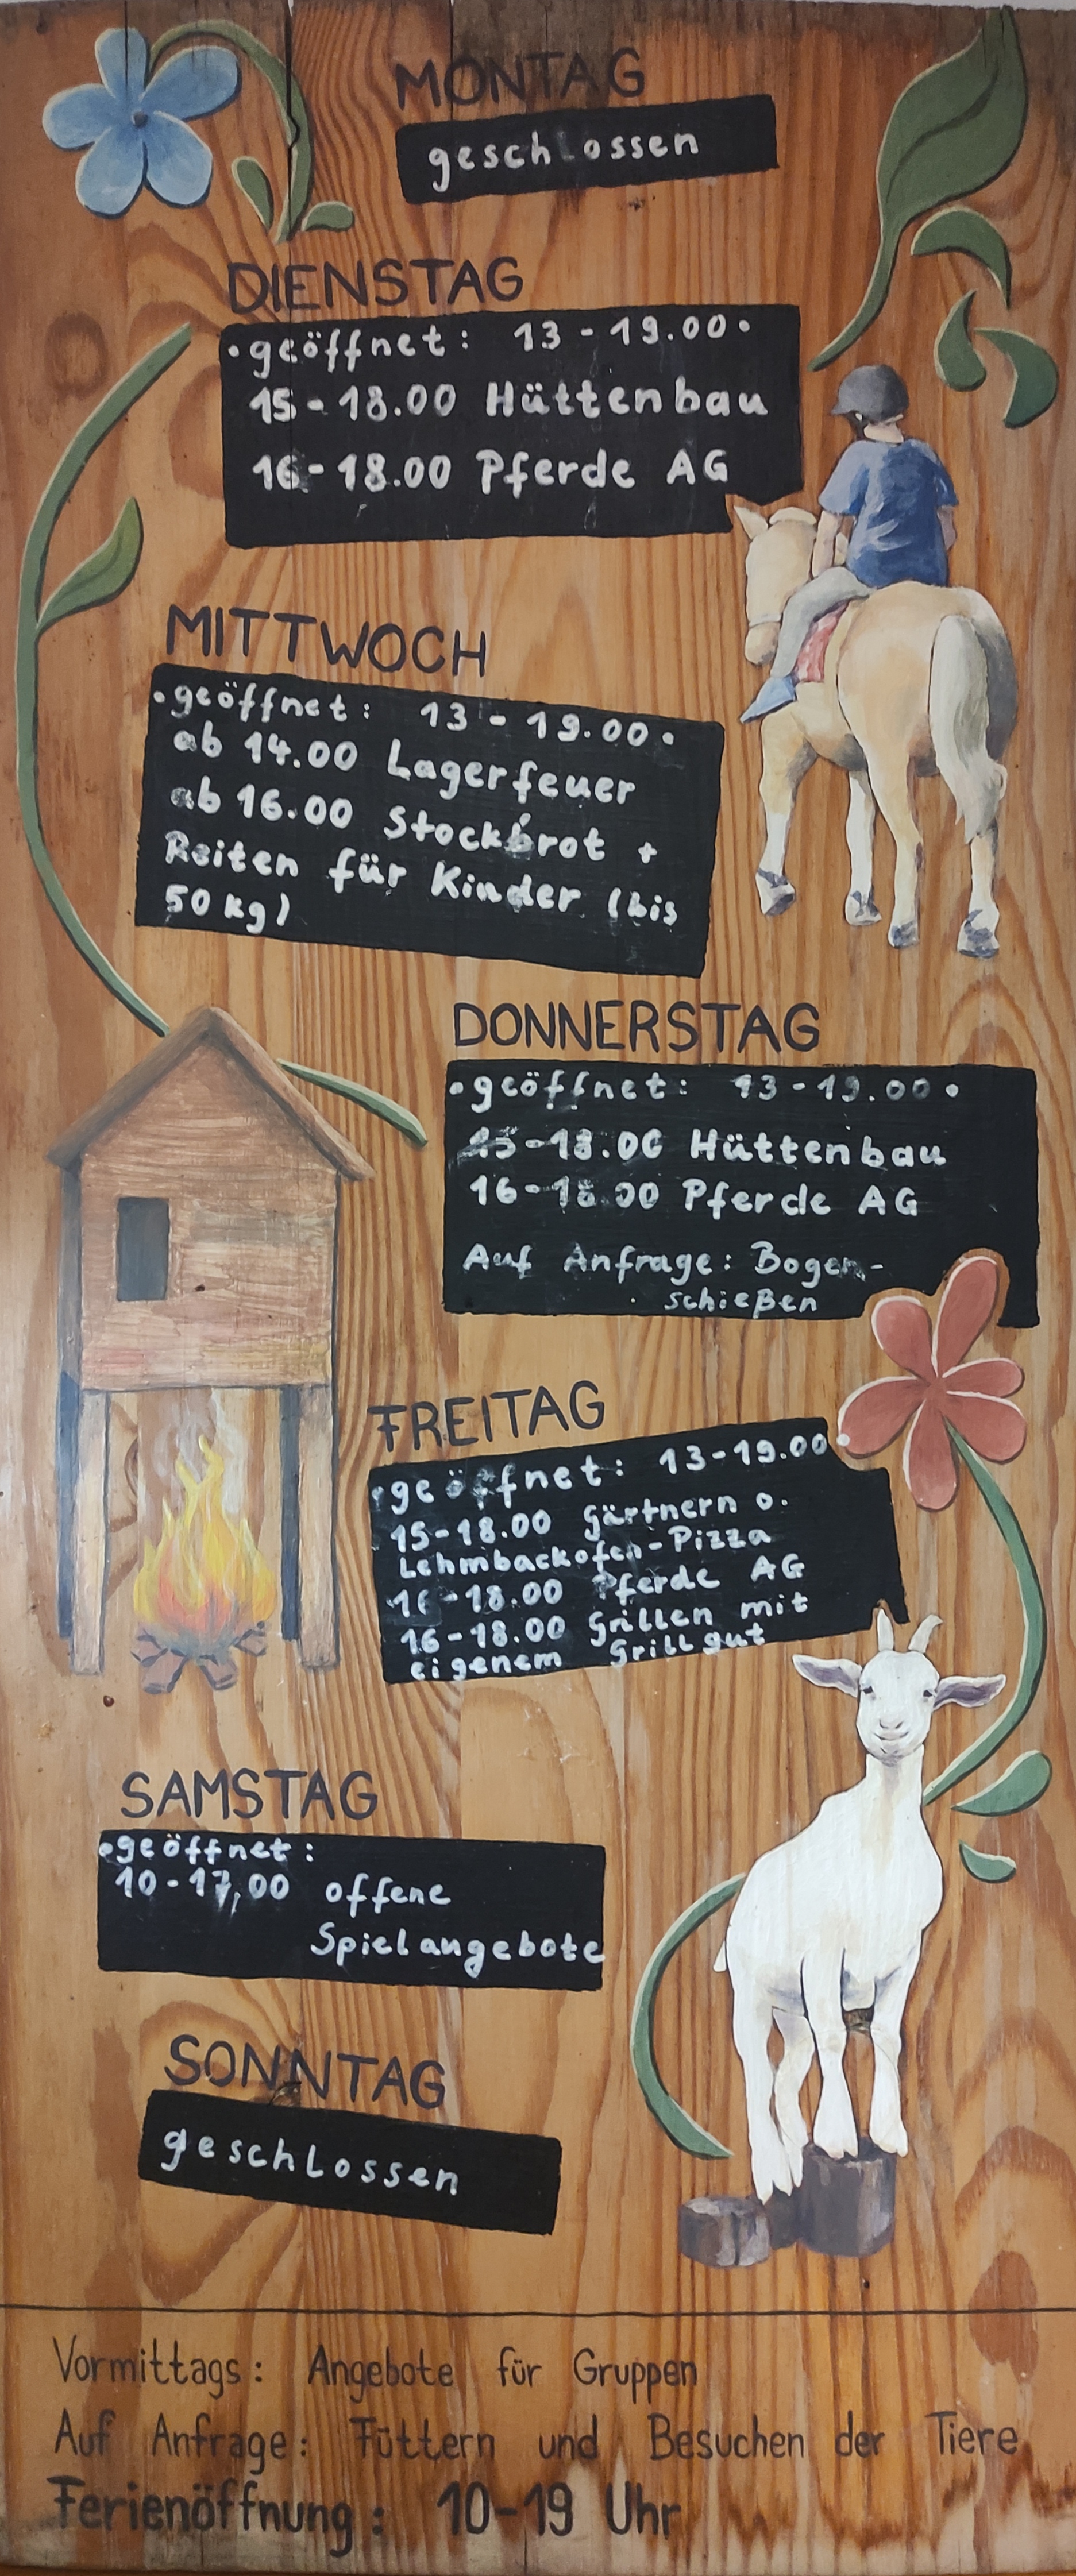 MONTAG
geschlossen
DIENSTAG
•geöffnet: 13-19.00•
15-18.00 Hüttenbau
16-18.00 Pferde AG
MITTWOCH
•geöffnet: 13-19.00•
ab 14.00 Lagerfeuer
ab 16.00 Stockbrot +
Reiten für Kinder (bis
50 kg)
DONNERSTAG
•geöffnet: 13-19.00•
15-18.00 Hüttenbau
16-18.00 Pferde AG
Auf Anfrage: Bogen-
schießen
FREITAG
•geöffnet: 13-19.00•
15-18.00 Gärtnern o.
Lehmbackofen-Pizza
16-18.00 Pferde AG
16-18.00 Grillen mit
eigenem Grillgut
SAMSTAG
•geöffnet:
10-17,00 offene
Spielangebote
SONNTAG
geschlossen
Vormittags: Angebote für Gruppen
Auf Anfrage: Füttern und Besuchen der Tiere
Ferienöffnung: 10-19 Uhr